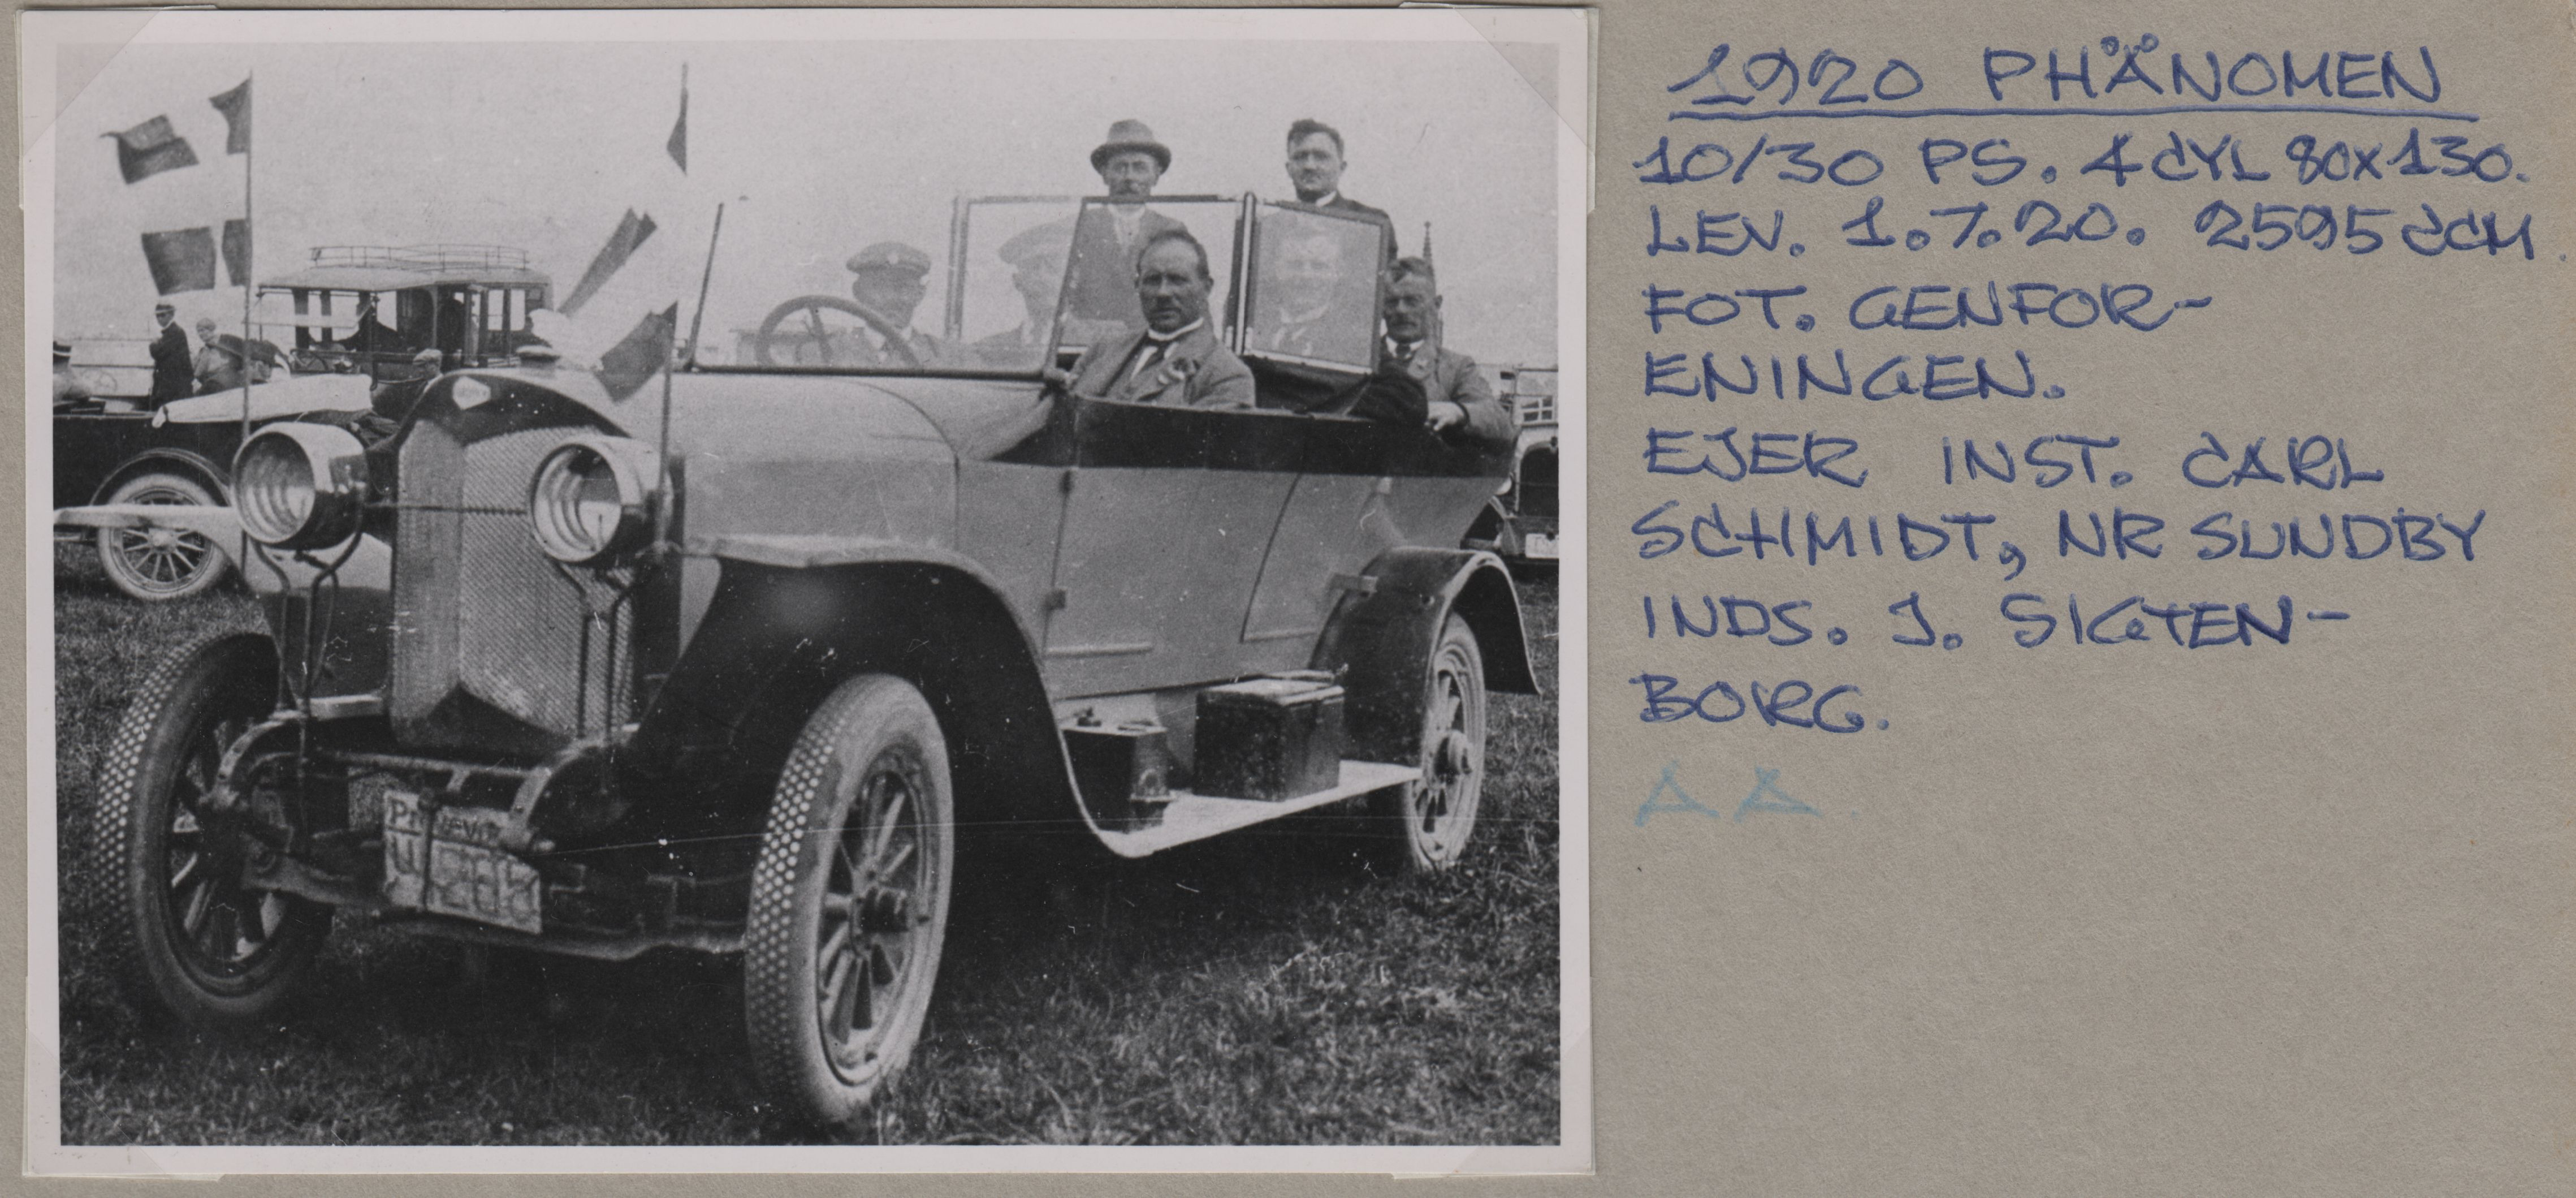 1920 PHÄNOMEN
10/30 PS. 4 CYL 80x130.
LEV. 1.7.20. 2595 CCM.
FOT. GENFOR-
ENINGEN.
EJER INST. CARL
SCHMIDT, NR SUNDBY
INDS. J. SIGTEN-
BORG.
AA.